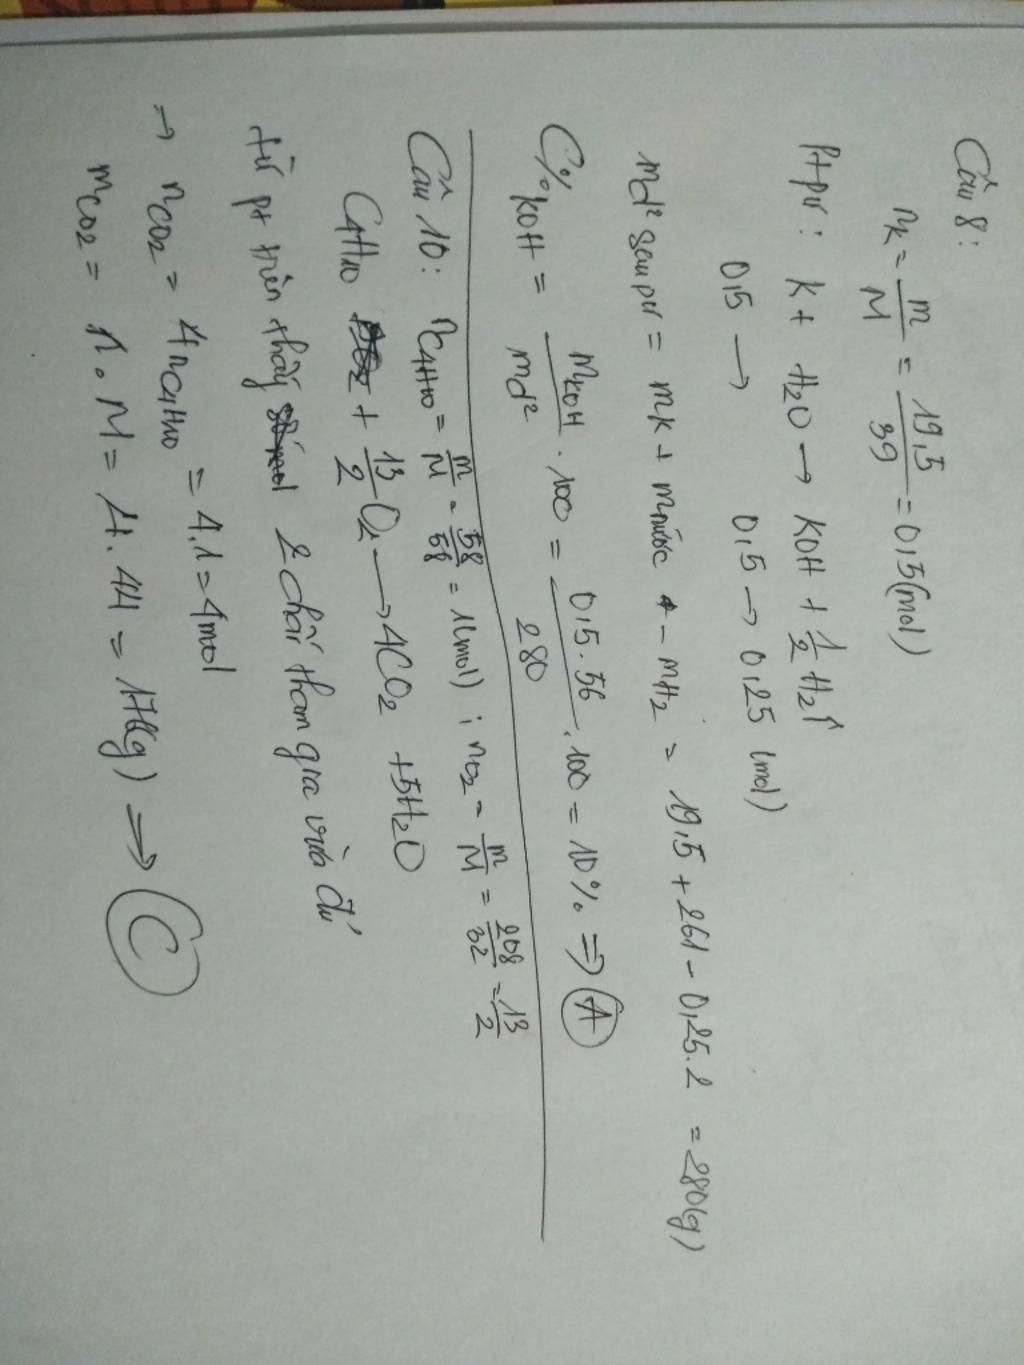 Câu 8:
nK = m/M = 19,5/39 = 0,5 (mol)
Ptpư: K + H2O → KOH + 1/2 H2↑
0,5 → 0,5 → 0,25 (mol)
md2 sau pư = mK + mnước - mH2 = 19,5 + 261 - 0,25.2 = 280(g)
C% KOH = mKOH/md2 . 100 = 0,5.56/280 . 100 = 10% ⇒ A
Câu 10: nC4H10 = m/M = 58/58 = 1(mol) ; nO2 = m/M = 208/32 = 13/2
C4H10 + 13/2 O2 → 4CO2 + 5H2O
từ pt trên thấy 2 chất tham gia vừa đủ
→ nCO2 = 4nC4H10 = 4.1 = 4mol
mCO2 = n.M = 4.44 = 176(g) ⇒ C